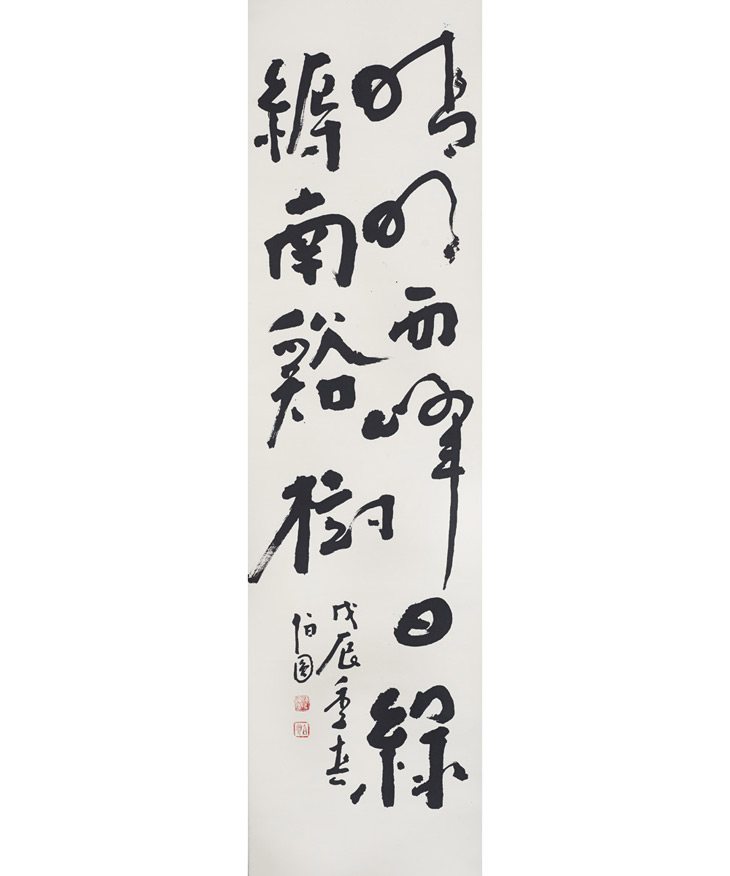 晴明西峰日綠
縟南谿樹
戊辰季春
伯圓